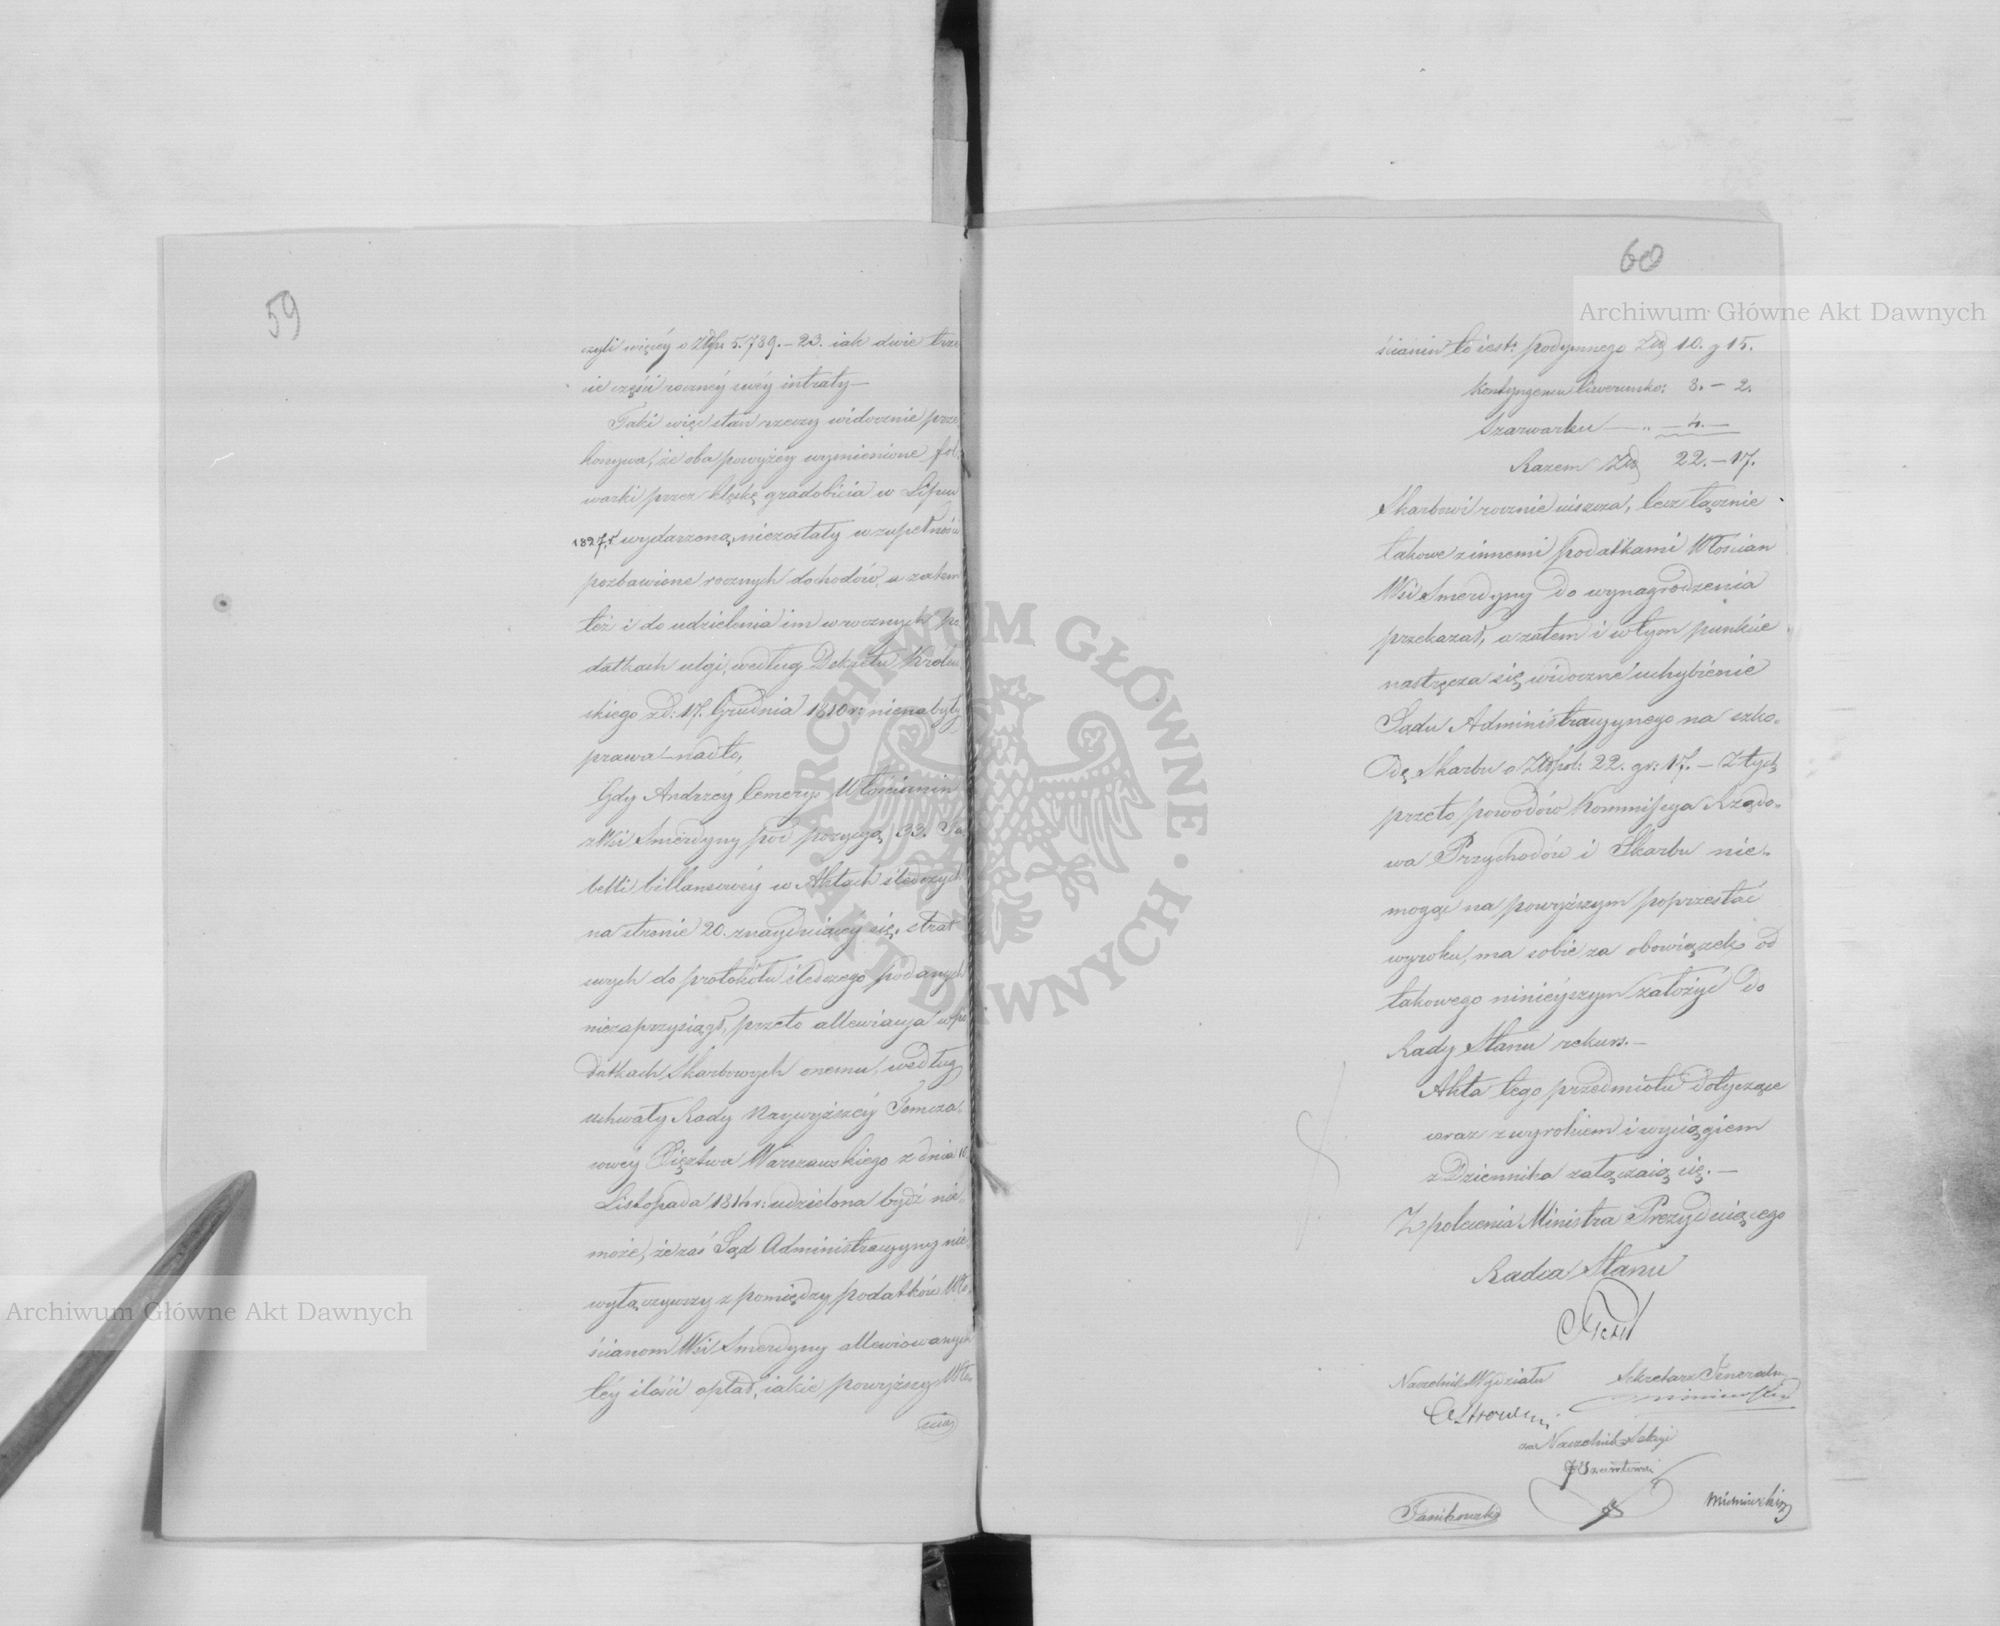 59
czyli więcéy o Złp. 5.789.–23. iak dwie trze
cie części rocznéy swéy intraty –
Taki więc stan rzeczy widocznie prze
konywa, że oba powyżéy wymienione fol-
warki przez klęskę gradobicia w Lipcu
1827 r. wydarzoną, niezostały w zupełności
pozbawione rocznych dochodów, a zatem
też i do udzielenia im w rocznych po
datkach ulgi, według Dekretu Królew
skiego z d: 17. Grudnia 1810 r. nienabyły
prawa – nadto,
Gdy Andrzéy Cemerys Włościanin
z Wsi Smerdyny pod pozycyą 33. Ta
belli billansowéy w Aktach śledczych
na stronie 20. znayduiącéy się, strat
swych do protokółu śledczego podanych
niezaprzysiągł, przeto allewiacya w po
datkach Skarbowych onemu, według
uchwały Rady Naywyższéy Tymcza-
sowéy Xięztwa Warszawskiego z dnia 10.
Listopada 1814 r: udzielona bydź nie
może, że zaś Sąd Administracyyny nie
wyłączywszy z pomiędzy podatków Wło-
ścianom Wsi Smerdyny allewiowanych
téy ilości opłat, iakie powyższy Wło
60
ścianin to iest: podymnego Złp 10. g 15.
Kontyngensu Liwerunko: 8. – 2.
Szarwarku — „ – 4. –
Razem Złp 22. – 17.
Skarbowi rocznie uiszcza, lecz łącznie
takowe z innemi podatkami Włościan
Wsi Smerdyny do wynagrodzenia
przekazał, a zatem i w tym punkcie
nastręcza się widoczne uchybienie
Sądu Administracyynego na szko-
dę Skarbu o Złpol: 22. gr: 17. – Z tych
przeto powodów Kommissya Rządo-
wa Przychodów i Skarbu nie-
mogąc na powyższym poprzestać
wyroku, ma sobie za obowiązek od
takowego ninieyszym założyć do
Rady Stanu rekurs. –
Akta tego przedmiotu dotyczące
wraz z wyrokiem i wyciągiem
z Dziennika załączaią się. –
Z polecenia Ministra Prezyduiącego
Radca Stanu
Naczelnik Wydziału
Sekretarz Jeneralny
za Naczelnik Sekcyi
Archiwum Główne Akt Dawnych
Archiwum Główne Akt Dawnych
ARCHIWUM GŁÓWNE · AKT DAWNYCH ·